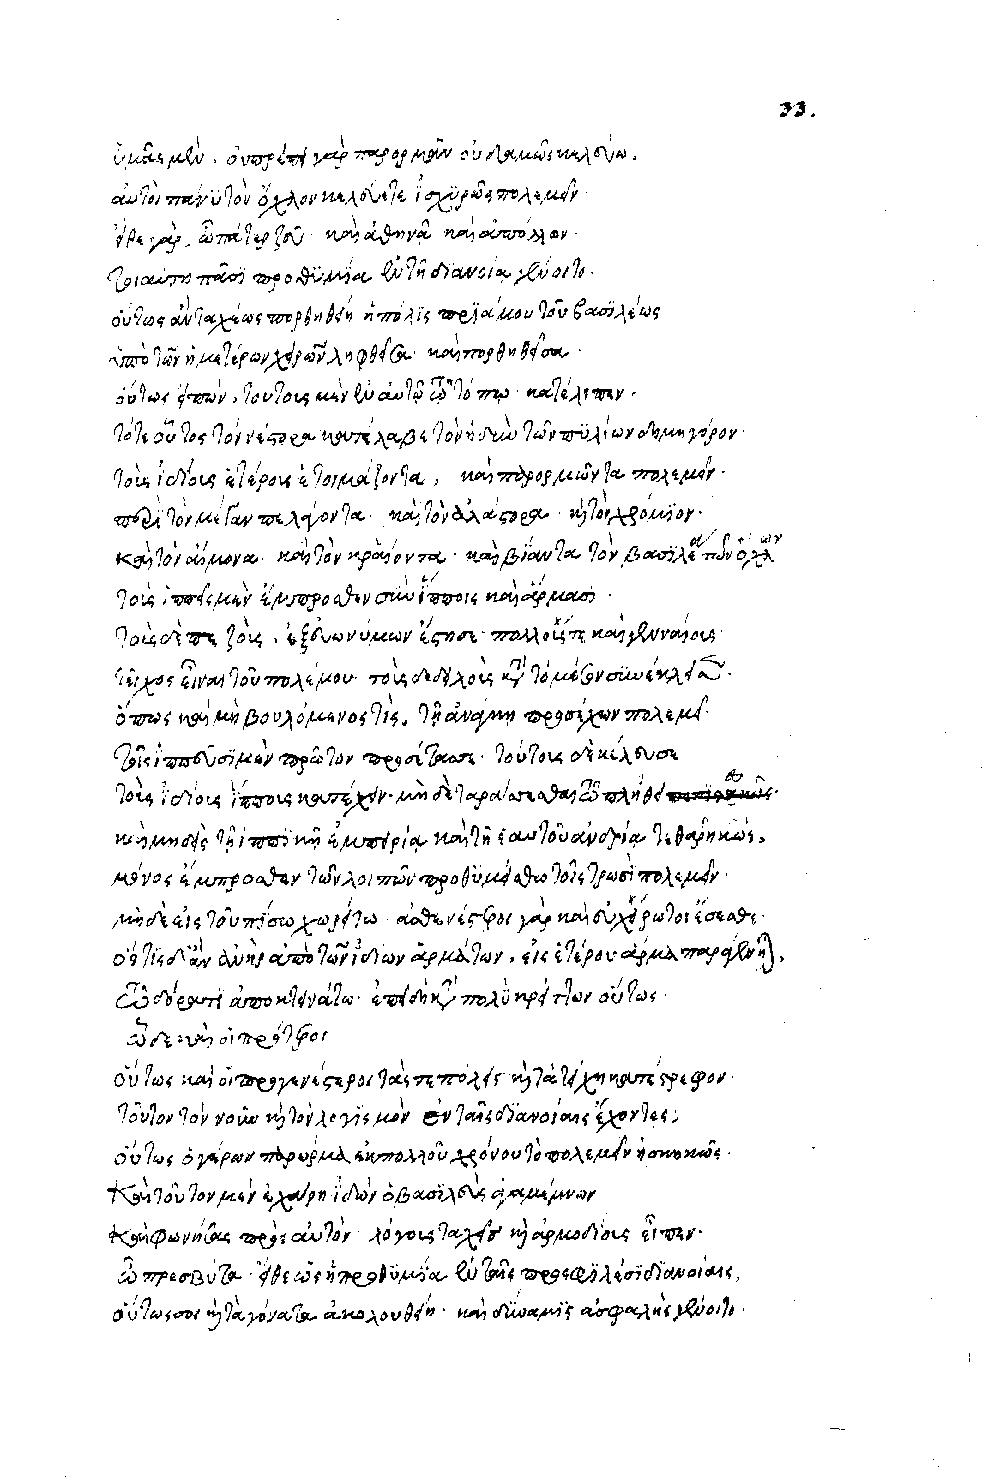 33.
ὑμᾶς μὲν, οὐ πρέπει γὰρ παρορμᾶν οὐδαμῶς κελεύω.
αὐτοὶ πάνυ τὸν ὄχλον κελεύετε ἰσχυρῶς πολεμεῖν·
εἴθε γὰρ, ὦ πάτερ ζεῦ· καὶ ἀθηνᾶ καὶ ἀπόλλον·
τοιαύτη πᾶσι προθυμία ἐν τῇ διανοία γένοιτο·
οὕτως ἂν ταχέως πορθηθείη ἡ πόλις πριάμου τοῦ βασιλέως
ὑπὸ τῶν ἡμετέρων χειρῶν ληφθεῖσα· καὶ πορθηθεῖσα·
οὕτως εἰπὼν, τούτους μὲν ἐν αὐτῷ τῷ τόπῳ κατέλιπεν·
τότε οὗτος τὸν νέστορα κατέλαβε τὸν ἡδὺν τῶν πυλίων δημηγόρον·
τοὺς ἰδίους ἑτέρους ἑτοιμάζοντα, καὶ παρορμῶντα πολεμεῖν·
περὶ τὸν μέγαν πελάγοντα· καὶ τὸν ἀλάστορα· καὶ τὸν χρόμιον·
καὶ τὸν αἵμονα· καὶ τὸν κραίοντα· καὶ βίαντα τὸν βασιλέα τῶν ὄχλων
τοὺς ἱππεῖς μὲν ἔμπροσθεν σὺν ἵπποις καὶ ἅρμασι·
τοὺς δὲ πεζοὺς, ἐξ εὐωνύμων ἔστησε· πολλούς τε καὶ γενναίους
τεῖχος εἶναι τοῦ πολέμου· τοὺς δὲ δειλοὺς κατὰ τὸ μέσον συνέκλεισεν·
ὅπως καὶ μὴ βουλόμενός τις, τῇ ἀνάγκη προσέχων πολεμεῖ·
τοῖς ἱππεῦσι μὲν πρῶτον προσέτασσε· τούτους δὲ κέλευσε
τοὺς ἰδίους ἵππους κατέχειν· μὴ δὲ ταράσσεσθαι τῷ πλήθει
καὶ μηδεὶς τῇ ἱππικῇ ἐμπειρία καὶ τῇ ἑαυτοῦ ἀνδρία τεθαρηκὼς,
μόνος ἔμπροσθεν τῶν λοιπῶν προθυμείσθω τοῖς τρωσὶ πολεμεῖν·
μὴ δὲ εἰς τοὐπίσω χωρείτω· ἀσθενέστεροι γὰρ καὶ εὐχείρωτοι ἔσεσθε·
ὅστις δ' ἂν ἀνὴρ ἀπὸ τῶν ἰδίων ἁρμάτων, εἰς ἑτέρου ἅρμα παραγένηται,
τῷ δόρατι ἀποκτεινάτω· ἐπειδὴ κατὰ πολὺ κρεῖττον οὕτως·
ὧδε καὶ οἱ πρότεροι
οὕτως καὶ οἱ προγενέστεροι τάς τε πόλεις καὶ τὰ τείχη κατέστρεφον·
τοῦτον τὸν νοῦν καὶ τὸν λογισμὸν ἐν ταῖς διανοίαις ἔχοντες;
οὕτως ὁ γέρων παρώρμα ἐκ πολλοῦ χρόνου τὸ πολεμεῖν ἠσκηκὼς·
Καὶ τοῦτον μὲν ἐχάρη ἰδὼν ὁ βασιλεὺς ἀγαμέμνων
Καὶ φωνήσας πρὸς αὐτὸν λόγους ταχεῖς καὶ ἁρμοδίους εἶπεν·
ὦ πρεσβῦτα· εἴθε ὡς ἡ προθυμία ἐν ταῖς προσφιλέσι διανοίαις,
οὕτως σοι καὶ τὰ γόνατα ἀκολουθείη· καὶ δύναμις ἀσφαλὴς γένοιτο·